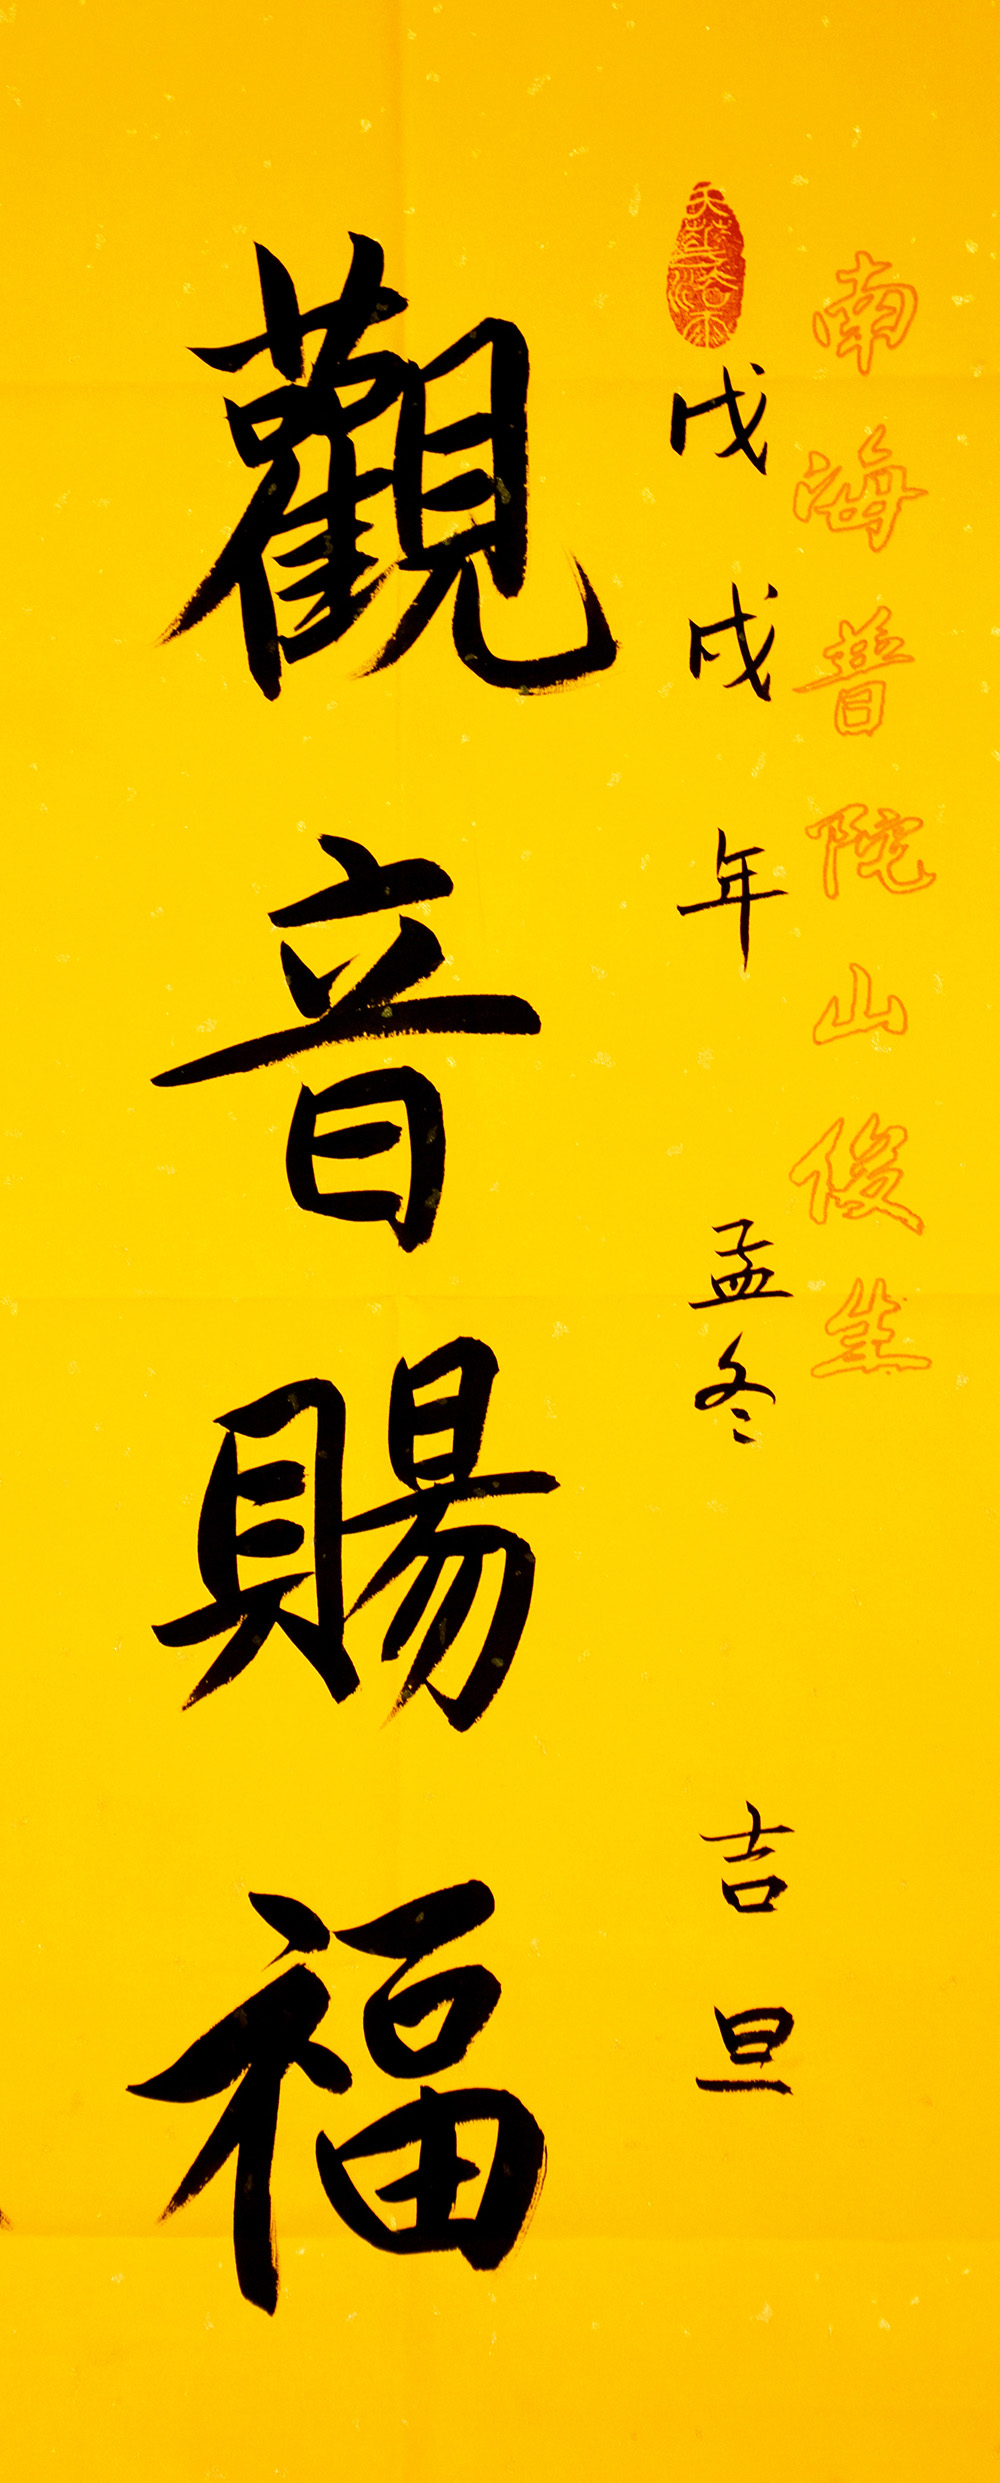 南海普陀山俊生
戊戌年 孟冬 吉旦
觀音賜福